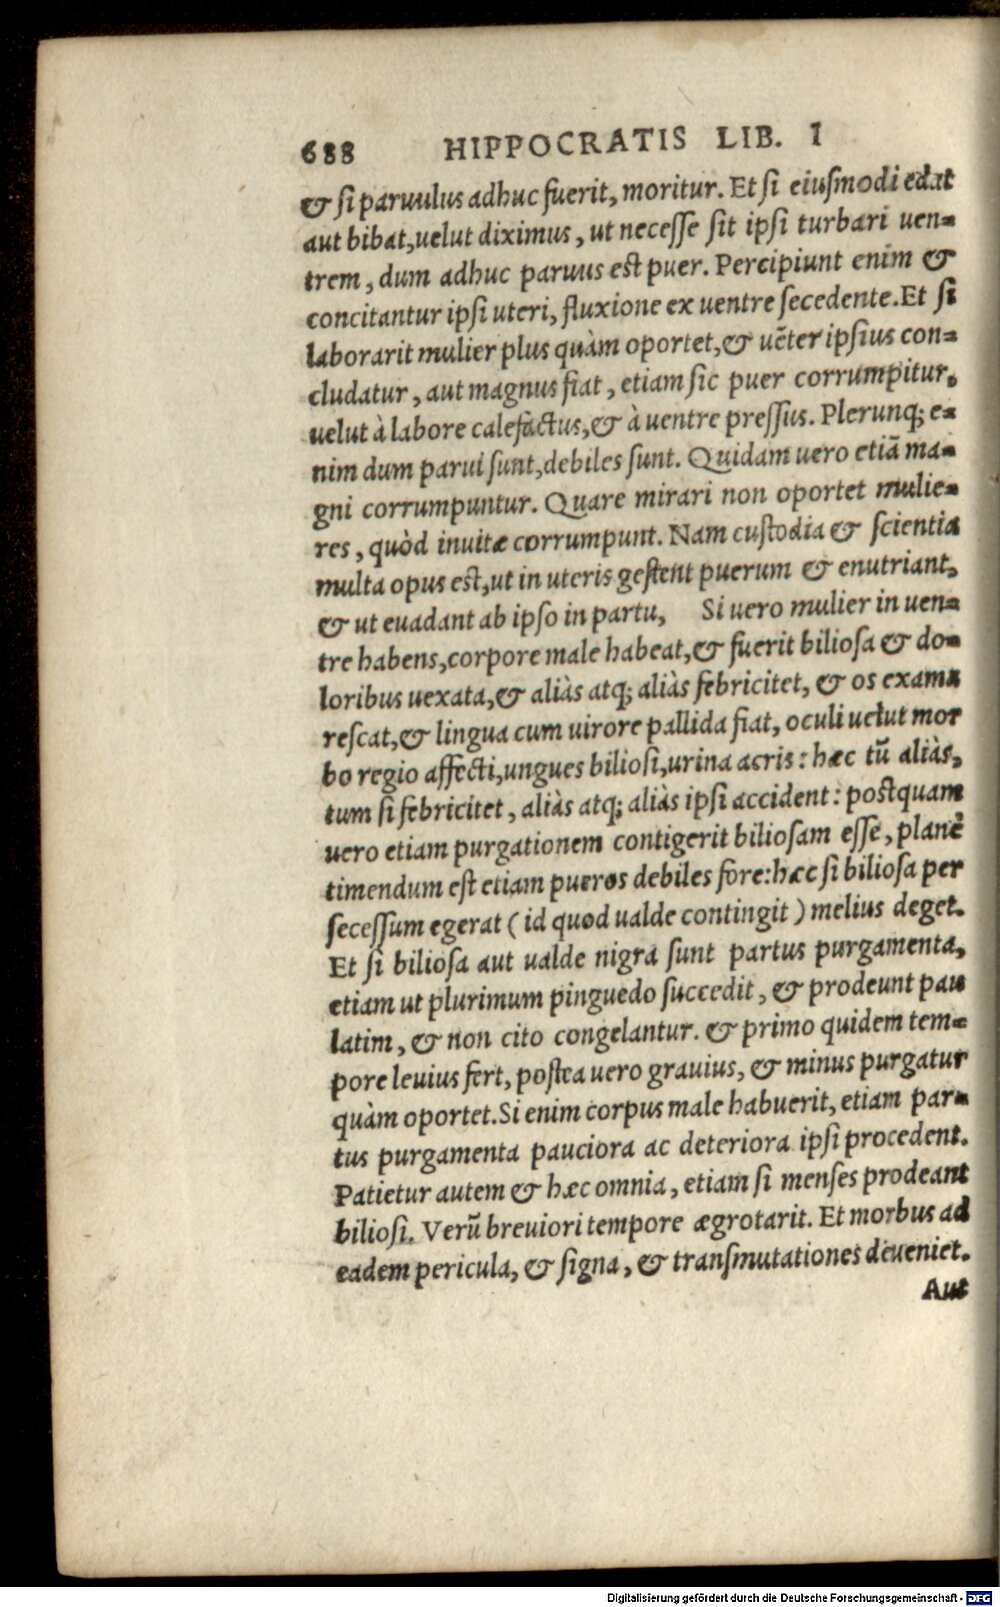 688 HIPPOCRATIS LIB. I
& si paruulus adhuc fuerit, moritur. Et si eiusmodi edat
aut bibat, uelut diximus, ut necesse sit ipsi turbari uen=
trem, dum adhuc paruus est puer. Percipiunt enim &
concitantur ipsi uteri, fluxione ex uentre secedente. Et si
laborarit mulier plus quàm oportet, & uẽter ipsius con=
cludatur, aut magnus fiat, etiam sic puer corrumpitur,
uelut à labore calefactus, & à uentre pressus. Plerunq; e=
nim dum parui sunt, debiles sunt. Quidam uero etiã ma=
gni corrumpuntur. Quare mirari non oportet mulie=
res, quòd inuitæ corrumpunt. Nam custodia & scientia
multa opus est, ut in uteris gestent puerum & enutriant,
& ut euadant ab ipso in partu, Si uero mulier in uen=
tre habens, corpore male habeat, & fuerit biliosa & do=
loribus uexata, & aliàs atq; aliàs febricitet, & os exama
rescat, & lingua cum uirore pallida fiat, oculi uelut mor
bo regio affecti, ungues biliosi, urina acris: hæc tũ aliàs,
tum si febricitet, aliàs atq; aliàs ipsi accident: postquam
uero etiam purgationem contigerit biliosam esse, planè
timendum est etiam pueros debiles fore: hæc si biliosa per
secessum egerat (id quod ualde contingit) melius deget.
Et si biliosa aut ualde nigra sunt partus purgamenta,
etiam ut plurimum pinguedo succedit, & prodeunt pau
latim, & non cito congelantur. & primo quidem tem=
pore leuius fert, postea uero grauius, & minus purgatur
quàm oportet. Si enim corpus male habuerit, etiam par=
tus purgamenta pauciora ac deteriora ipsi procedent.
Patietur autem & hæc omnia, etiam si menses prodeant
biliosi. Verũ breuiori tempore ægrotarit. Et morbus ad
eadem pericula, & signa, & transmutationes deueniet.
Aut
Digitalisierung gefördert durch die Deutsche Forschungsgemeinschaft - DFG